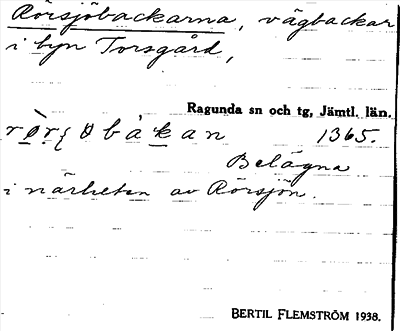 Rörsjöbackarna, vägbackar
i byn Torsgård,
Ragunda sn och tg, Jämtl. län.
båkan 1365.
Belägna
i närheten av Rörsjön.
BERTIL FLEMSTRÖM 1938.